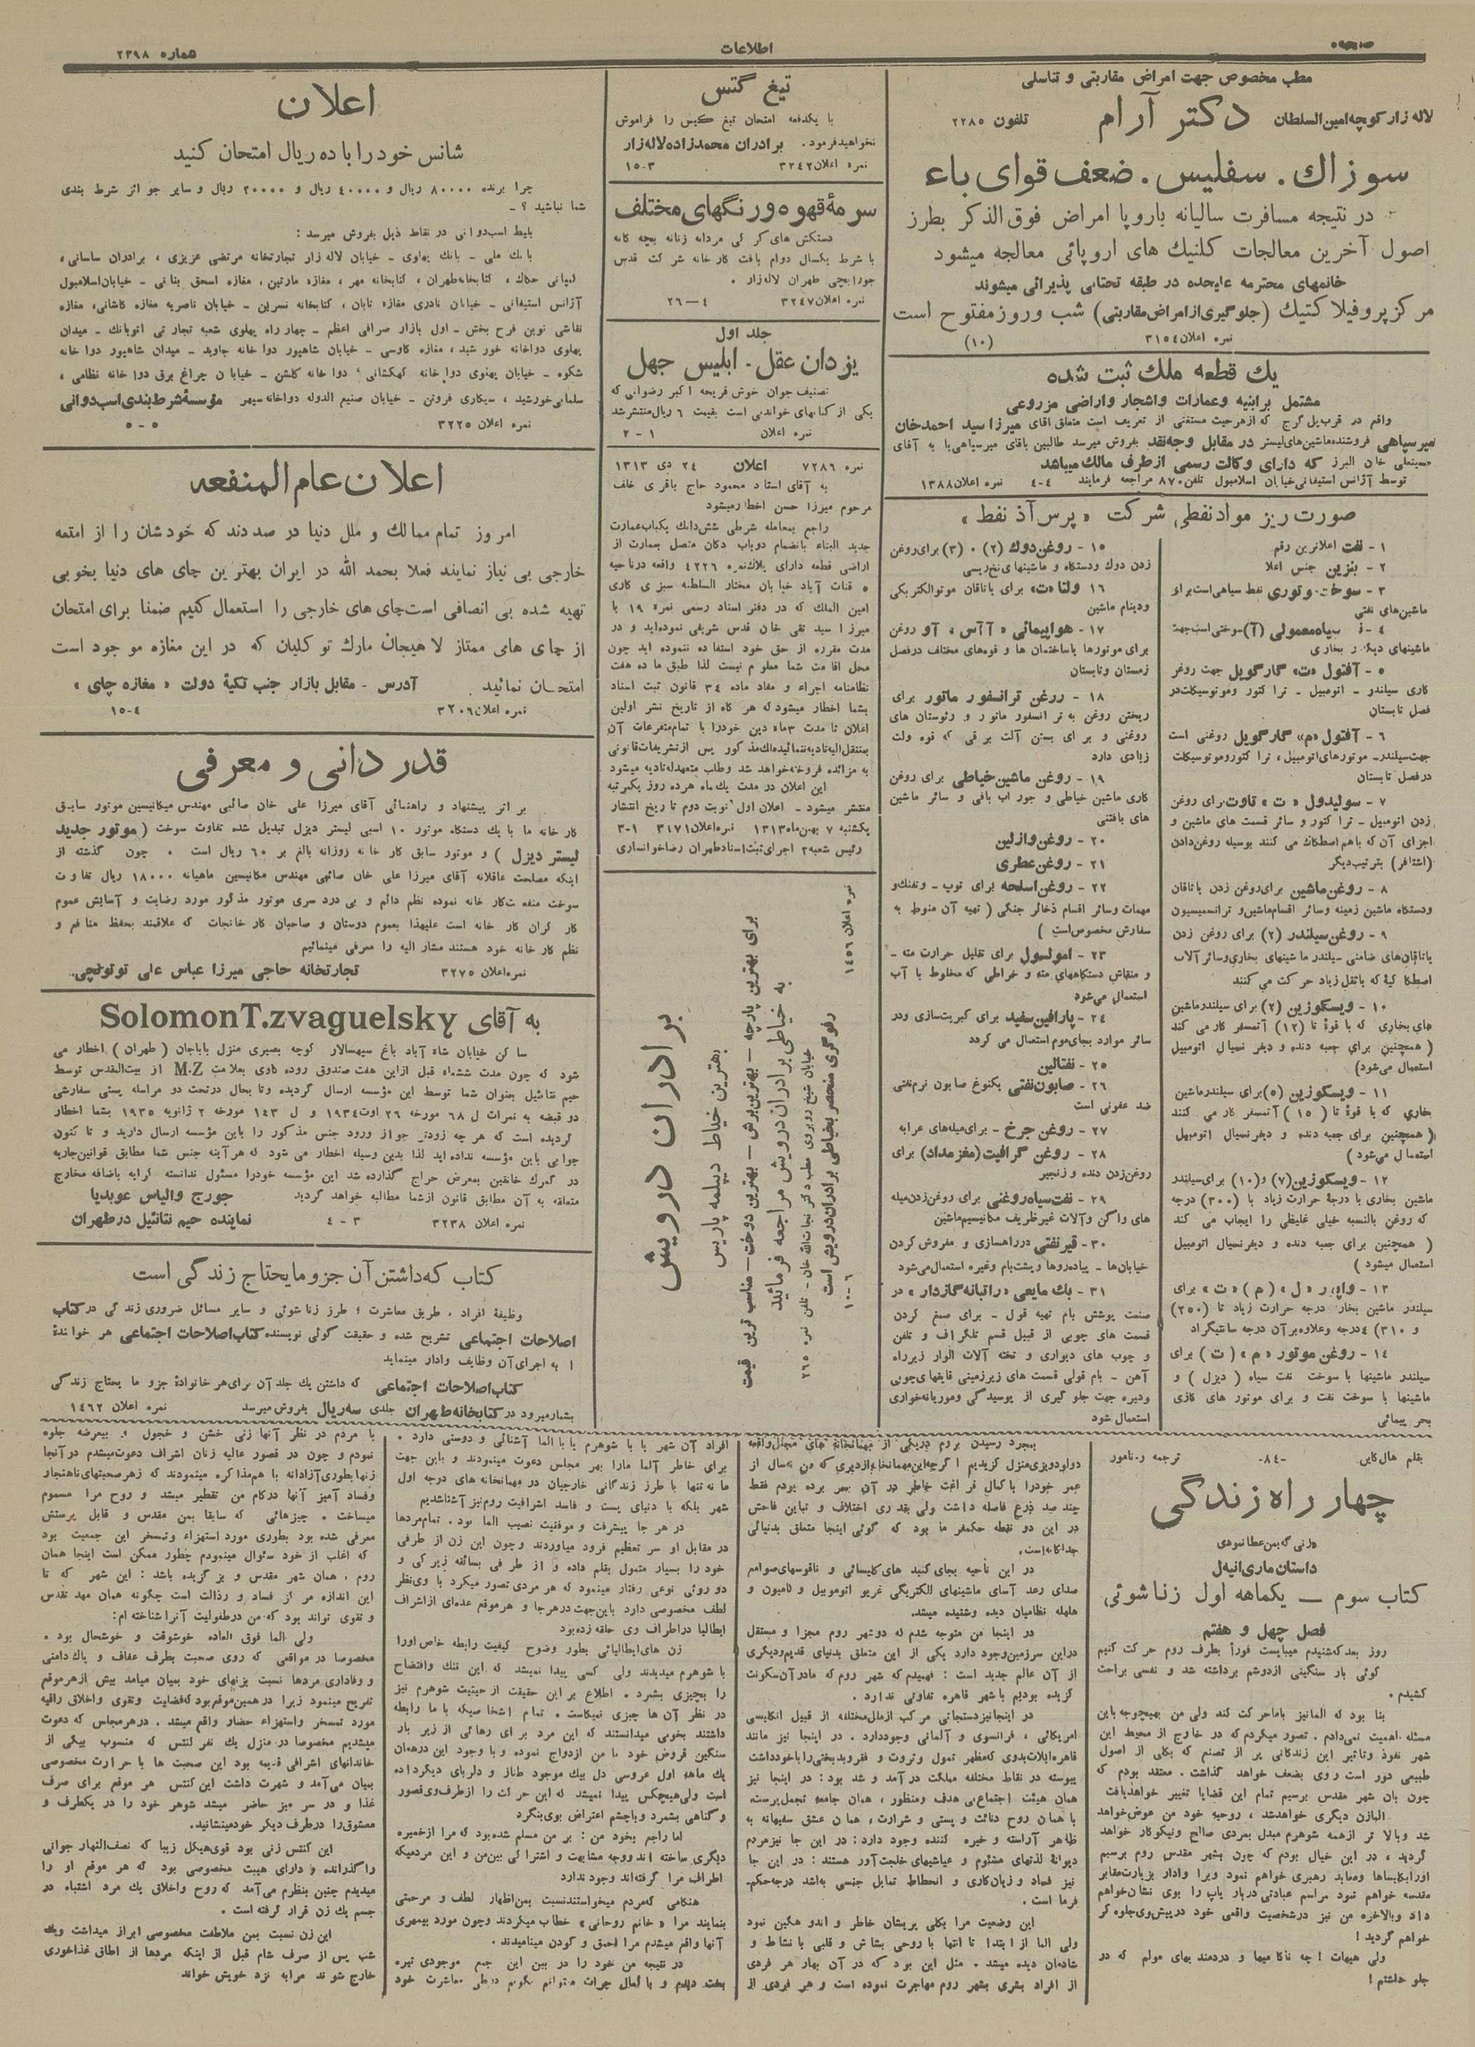 صفحه
اطلاعات
شماره ۲۳۹۸
مطب مخصوص جهت امراض مقاربتی و تناسلی
لاله زار کوچه امین السلطان دکتر آرام تلفون ۲۲۸۵
سوزاك. سفلیس. ضعف قوای باء
در نتیجه مسافرت سالیانه باروپا امراض فوق الذکر بطرز
اصول آخرین معالجات کلنیك های اروپائی معالجه میشود
خانمهای محترمه علیحده در طبقه تحتانی پذیرائی میشوند
مرکز پروفیلاکتیك (جلوگیری از امراض مقاربتی) شب وروز مفتوح است
نمره اعلان ۳۱۵۴ (۱۰)
یك قطعه ملك ثبت شده
مشتمل برابنیه وعمارات واشجار واراضی مزروعی
واقع در قرب پل کرج که از هر حیث مستغنی از تعریف است متعلق بآقای میرزا سید احمدخان
میرسپاهی فروشنده ماشین های لیستر در مقابل وجه نقد بفروش میرسد طالبین بآقای میرسپاهی یا به آقای
حسینعلی خان البرز که دارای وکالت رسمی از طرف مالك میباشد
توسط آژانس استیفانی خیابان اسلامبول تلفن ۸۷۰ مراجعه فرمایند ۴-۴ نمره اعلان ۱۳۸۸
صورت ریز مواد نفطی شرکت « پرس آذ نفط »
۱ - نفت اعلا ترین رقم
۲ - بنزین جنس اعلا
۳ - سوخت موتوری نفط سیاهی است برای
ماشین های نفتی
ماشینهای دیگر و بخاری
۵ - آفتول «ت» گارگویل جهت روغن
کاری سیلندر - اتومبیل - ترا کتور وموتوسیکلت در
فصل تابستان
۶ - آفتول «م» گارگویل روغنی است
جهت سیلندر - موتورهای اتومبیل، ترا کتور وموتوسیکلت
در فصل تابستان
۷ - سولیدول « ت » تاوت برای روغن
زدن اتومبیل - ترا کتور و سائر قسمت های ماشین و
اجزای آن که باهم اصطکاك می کنند بوسیله روغن دادن
(اشتافر) بترتیب دیگر
۸ - روغن ماشین برای روغن زدن یاتاقان
ودستگاه ماشین زمینه وسائر اقسام ماشین و ترانسمیسیون
۹ - روغن سیلندر (۲) برای روغن زدن
اصطکا کیۀ که باثقل زیاد حرکت می کنند
۱۰ - ویسکوزین (۲) برای سیلندر ماشین
های بخاری که با قوۀ تا (۱۲) آتمسفر کار می کند
( همچنین برای جعبه دنده و دیفر نسیال اتومبیل
استعمال می شود)
۱۱ - ویسکوزین (۵) برای سیلندر ماشین
بخاری که با قوۀ تا ( ۱۵ ) آتمسفر کار می کنند
( همچنین برای جعبه دنده و دیفرنسیال اتومبیل
استعمال می شود )
۱۲ - ویسکوزین(۷) و(۱۰) برای سیلندر
ماشین بخاری با درجۀ حرارت زیاد با (۳۰۰) درجه
که روغن بالنسبه خیلی غلیظی را ایجاب می کند
( همچنین برای جعبه دنده و دیفرنسیال اتومبیل
استعمال میشود )
سیلندر ماشین بخار درجه حرارت زیاد تا (۲۵۰)
و (۳۱۰) درجه وعلاوه بر آن درجه سانتیگراد
۱۴ - روغن موتور « م » ( ت ) برای
سیلندر ماشینها با سوخت نفت سیاه ( دیزل ) و
ماشینها با سوخت نفت و برای موتور های گازی
بحر پیمائی
۱۵ - روغن دوك (۲) ۰ (۳) برای روغن
زدن دوك ودستگاه و ماشینهای نخ ریسی
۱۶ ولتا «ت» برای یاتاقان موتوالکتریکی
ودینام ماشین
۱۷ - هواپیمائی « آآس » آو روغن
برای موتورها باساختمان ها و قوه های مختلف در فصل
زمستان وتابستان
۱۸ - روغن ترانسفور ماتور برای
ریختن روغن به ترانسفور ماتور و رئوستان های
روغنی و برای بستن آلت برقی که قوه ولت
زیادی دارد
۱۹ - روغن ماشین خیاطی برای روغن
کاری ماشین خیاطی و جوراب بافی و سائر ماشین
های بافتنی
۲۰ - روغن وازلین
۲۱ - روغن عطری
۲۲ - روغن اسلحه برای توپ - وتفنك و
مهمات وسائر اقسام ذخائر جنگی ( تهیه آن منوط به
سفارش مخصوص است )
۲۳ - امولسول برای تقلیل حرارت مته -
و منقاش دستگاههای مته و خراطی که مخلوط با آب
استعمال می شود
۲۴ - پارافین سفید برای کبریت سازی ودر
سائر موارد بجای موم استعمال می گردد
۲۵ - نفتالین
۲۶ - صابون نفتی یکنوع صابون نرم نفتی
ضد عفونی است
۲۷ - روغن چرخ - برای میله های عرابه
۲۸ - روغن گرافیت (مغز مداد) برای
روغن زدن دنده و زنجیر
۲۹ - نفت سیاه روغنی برای روغن زدن میله
های واگن وآلات غیر ظریف مکانیسیم ماشین
۳۰ - قیر نفتی در راهسازی و مفروش کردن
خیابان ها - پیاده روها وپشت بام وغیره استعمال می شود
صنعت پوشش بام تهیه قول - برای صمغ کردن
قسمت های چوبی از قبیل قسم تلگراف و تلفن
و چوب های دیواری و تخته آلات الوار زیر راه
آهن - بام قولی قسمت های زیرزمینی قایقهای چوبی
وغیره جهت جلو گیری از پوسیدگی وموریانه خواری
استعمال شود
تیغ گتس
با یکدفعه امتحان تیغ گتس را فراموش
نخواهید فرمود. برادران محمدزاده لاله زار
نمره اعلان ۳۲۴۲ ۳-۱۵
سرمۀ قهوه ورنگهای مختلف
دستکش های کر کی مردانه زنانه بچه گانه
با شرط یکسال دوام بافت کارخانه شرکت قدس
جورابچی طهران لاله زار.
نمره اعلان ۳۲۴۷ ۴-۲۶
جلد اول
یزدان عقل - ابلیس جهل
تصنیف جوان خوش قریحه اکبر رضوانی که
یکی از کتابهای خواندنی است بقیمت ۶ ریال منتشر شد
نمره اعلان ۱-۲
نمره ۷۲۸۶ اعلان ۲۴ دی ۱۳۱۳
به آقای استاد محمود حاج باقری خلف
مرحوم میرزا حسن اخطار میشود
راجع بمعامله شرطی ششدانك یکباب عمارت
جدید البناء بانضمام دوباب دکان متصل بعمارت از
اراضی قطعه دارای پلاك نمره ۴۲۲۶ واقعه در ناحیه
۵ قنات آباد خیابان مختار السلطنه سبزی کاری
امین الملك که در دفتر اسناد رسمی نمره ۱۹ با
میرزا سید تقی خان قدس شریفی نموده اید و در
مدت مقرره از حق خود استفاده ننموده اید چون
محل اقامت شما معلوم نیست لذا طبق ماده هفت
نظامنامه اجراء و مفاد ماده ۳۴ قانون ثبت اسناد
بشما اخطار میشود که هر گاه از تاریخ نشر اولین
اعلان تا مدت ۳ ماه دین خود را با تمام متفرعات آن
بمنتقل الیه تادیه ننمائید ملك مذکور پس از تشریفات قانونی
به مزایده فروخته خواهد شد وطلب متعهد له تادیه میشود
این اعلان در مدت یك ماه هرده روز یکمرتبه
منتشر میشود - اعلان اول نوبت دوم تاریخ انتشار
یکشنبه ۷ بهمن ماه ۱۳۱۳ نمره اعلان ۳۱۷۱ ۱-۳
رئیس شعبه ۲ اجرای ثبت اسناد طهران رضا خوانساری
برادران درویش
بهترین خیاط دیپلمه پاریس
برای بهترین پارچه - بهترین برش - بهترین دوخت - مناسب ترین قیمت
به خیاطی برادران درویش مراجعه فرمائید
خیابان شیخ روبروی مطب دکتر نجات الله خان - تلفن نمره ۲۶۵
رفوگری منحصر بخیاطی برادران درویش است
نمره اعلان ۱۴۵۶ ۶-۱۰
اعلان
شانس خود را با ده ریال امتحان کنید
چرا برنده ۸۰۰۰۰ ریال و ۴۰۰۰۰ ریال و ۲۰۰۰۰ ریال و سایر جوائز شرط بندی
شما نباشید ؟ -
بلیط اسب دوانی در نقاط ذیل بفروش میرسد :
بانك ملی - بانك پهلوی - خیابان لاله زار تجارتخانه مرتضی عزیزی، برادران ساسانی،
آژانس استیفانی - خیابان نادری مغازه تابان، کتابخانه نسرین - خیابان ناصریه مغازه کاشانی، مغازه
نقاشی نوین فرح بخش - اول بازار صرافی اعظم - چهار راه پهلوی شعبه تجارتی اتوبانك - میدان
پهلوی دواخانه خورشید، مغازه کاوسی - خیابان شاهپور دوا خانه جاوید - میدان شاهپور دوا خانه
شکوه - خیابان پهلوی دوا خانه کهکشانی، دوا خانه گلشن - خیابان چراغ برق دوا خانه نظامی،
سلمانی خورشید، سیگاری فروتن - خیابان صنیع الدوله دواخانه سپهر مؤسسۀ شرط بندی اسب دوانی
نمره اعلان ۳۲۲۵ ۵-۵
اعلان عام المنفعه
امروز تمام ممالك و ملل دنیا در صدد ند که خودشان را از امتعه
خارجی بی نیاز نمایند فعلا بحمد الله در ایران بهترین چای های دنیا بخوبی
تهیه شده بی انصافی است چای های خارجی را استعمال کنیم ضمنا برای امتحان
از چای های ممتاز لاهیجان مارك تو کلیان که در این مغازه موجود است
امتحان نمائید. آدرس - مقابل بازار جنب تکیۀ دولت « مغازه چای »
نمره اعلان ۳۲۰۶ ۴-۱۵
قدر دانی و معرفی
بر اثر پیشنهاد و راهنمائی آقای میرزا علی خان صائبی مهندس میکانیسین موتور سابق
کارخانه ما با یك دستگاه موتور ۱۰ اسبی لیستر دیزل تبدیل شده تفاوت سوخت ( موتور جدید
لیستر دیزل ) و موتور سابق کار خانه روزانه بالغ بر ۶۰ ریال است. چون گذشته از
اینکه مصلحت عاقلانه آقای میرزا علی خان صائبی مهندس مکانیسین ماهیانه ۱۸۰۰۰ ریال تفاوت
سوخت منفعت کار خانه نموده نظم دائم و بی درد سری موتور مذکور مورد رضایت و آسایش عموم
کار گران کار خانه است علیهذا بعموم دوستان و صاحبان کار خانجات که علاقمند بحفظ منافع و
نظم کار خانه خود هستند مشار الیه را معرفی مینمائیم
نمره اعلان ۳۲۷۵ تجارتخانه حاجی میرزا عباس علی توتونچی
به آقای SolomonT.zvaguelsky
ساکن خیابان شاه آباد باغ سپهسالار کوچه بصیری منزل باباجان (طهران) اخطار می
شود که چون مدت ششماه قبل از این هفت صندوق روده گاوی بعلامت M.Z از بیت المقدس توسط
حیم نتانئیل بعنوان شما توسط این مؤسسه ارسال گردیده وتا بحال در تحت دو مراسله پستی سفارشی
دو قبضه به نمرات ل ۶۸ مورخه ۲۶ اوت ۱۹۳۴ و ل ۱۴۳ مورخه ۲ ژانویه ۱۹۳۵ بشما اخطار
گردیده است که هر چه زودتر جواز ورود جنس مذکور را باین مؤسسه ارسال دارید و تا کنون
جوابی باین مؤسسه نداده اید لذا بدین وسیله اخطار می شود که هر آینه جنس شما مطابق قوانین جاریه
در گمرك خانقین بمعرض حراج گذارده شد این مؤسسه خودرا مسئول ندانسته کرایه باضافه مخارج
متعلقه به آن مطابق قانون از شما مطالبه خواهد گردید جورج والیاس عوبدیا
نمره اعلان ۳۲۳۸ ۳-۴ نماینده حیم نتانئیل در طهران
کتاب که داشتن آن جزو مایحتاج زندگی است
وظیفۀ افراد، طریق معاشرت، طرز زناشوئی و سایر مسائل ضروری زندگی در کتاب
اصلاحات اجتماعی تشریح شده و حقیقت گوئی نویسنده کتاب اصلاحات اجتماعی هر خوانندۀ
ا به اجرای آن وظایف وادار مینماید
کتاب اصلاحات اجتماعی که داشتن یك جلد آن برای هر خانوادۀ جزو ما یحتاج زندگی
بشمار میرود در کتابخانه طهران جلدی سه ریال بفروش میرسد نمره اعلان ۱۴۶۲
بقلم هال کاین -۸۴- ترجمه ر. نامور
چهار راه زندگی
«زنی که بمن عطا نمودی»
داستان ماری انیه ل
کتاب سوم - یکماهه اول زناشوئی
فصل چهل و هفتم
روز بعد که شنیدم میبایست فوراً بطرف روم حرکت کنیم
گوئی بار سنگینی از دوشم برداشته شد و نفسی براحت
کشیدم.
بنا بود که آلما نیز باما حرکت کند ولی من بهیچوجه باین
مسئله اهمیت نمی دادم. تصور میکردم که در خارج از محیط این
شهر نفوذ وتاثیر این زندگانی پر از تصنع که بکلی از اصول
طبیعی دور است روی بضعف خواهد گذاشت. معتقد بودم که
چون بآن شهر مقدس برسیم تمام این قضایا تغییر خواهد یافت
شد وبالاتر از همه شوهرم مبدل بمردی صالح ونیکوکار خواهد
گردید، در این خیال بودم که چون بشهر مقدس روم برسیم
اورا بکلیساها ومعابد رهبری خواهم نمود ویرا وادار بزیارت مقابر
مقدسه خواهم نمود مراسم عبادتی دربار پاپ را بوی نشان خواهم
داد وبالاخره من نیز در شخصیت واقعی خود در پیش وی جلوه گر
خواهم گردید !
ولی هیهات ! چه ناکامیها و دردمند بهای مولم که در
جلو داشتم !
عمر خودرا با کمال فراغت خاطر در آن بسر برده بودم فقط
چند صد ذرع فاصله داشت ولی بقدری اختلاف و تباین فاحش
در این دو نقطه حکمفر ما بود که گوئی اینجا متعلق بدنیائی
جداگانه است.
در این ناحیه بجای گنبد های کلیسائی و ناقوسهای صوامع
صدای رعد آسای ماشینهای الکتریکی غریو اتوموبیل و
هلهله نظامیان دیده وشنیده میشد.
در اینجا من متوجه شدم که دوشهر روم مجزا و مستقل
در این سرزمین وجود دارد یکی از این متعلق بدنیای قدیم ودیگری
از آن عالم جدید است : فهمیدم که شهر روم که مادر آن سکونت
گزیده بودیم با شهر قاهره تفاوتی ندارد.
در اینجا نیز دستجاتی مرکب از ملل مختلفه از قبیل انگلیسی
امریکائی، فرانسوی و آلمانی وجود دارد. در اینجا نیز مانند
پیوسته در نقاط مختلفه مملکت در آمد و شد بود : در اینجا نیز
همان هیئت اجتماعی بی هدف ومنظور، همان جامعه تجمل پرست،
با همان روح دنائت و پستی و شرارت، همان عشق سفیهانه به
ظاهر آراسته و خیره کننده وجود دارد : در این جا نیز مردم
دیوانۀ لذتهای مشئوم و عیاشیهای خجلت آور هستند : در این جا
نیز فساد و زیان کاری و انحطاط تمایل جنسی باشد درجه حکم
فرما است.
این وضعیت مرا بکلی پریشان خاطر و اندو هگین نمود
ولی آلما از ابتدا تا انتها با روحی بشاش و قلبی با نشاط و
شادمان دیده میشد. مثل این بود که در آن بهار هر فردی
از افراد بشری بشهر روم مهاجرت نموده است و هر فردی از
افراد آن شهر یا با شوهرم یا با آلما آشنائی و دوستی دارد.
برای خاطر آلما مارا بهر مجلس دعوت مینمودند و باین جهت
ما نه تنها با طرز زندگانی خارجیان در مهمانخانه های درجه اول
شهر بلکه با دنیای پست و فاسد اشرافیت روم نیز آشنا شدیم
در هر جا پیشرفت و موفقیت نصیب آلما بود. تمام مردها
در مقابل او سر تعظیم فرود میاوردند وچون این زن از طرفی
خود را بسیار متمول بقلم داده و از طرفی بسائقه زیرکی و
دو روئی نوعی رفتار مینمود که هر مردی تصور میکرد با وی نظر
لطف مخصوصی دارد باین جهت در هر جا و هر موقع عده ای از اشراف
ایطالیا در اطراف وی حلقه زده بود
زن های ایطالیائی بطور وضوح کیفیت رابطه خاص اورا
با شوهرم میدیدند ولی کسی پیدا نمیشد که این ننك وافتضاح
را بچیزی بشمرد. اطلاع بر این حقیقت از حیثیت شوهرم نیز
در نظر آن ها چیزی نمیکاست. تمام اشخاصیکه با ما رابطه
داشتند بخوبی میدانستند که این مرد برای رهائی از زیر بار
سنگین قروض خود با من ازدواج نموده و با وجود این در همان
یك ماهه اول عروسی دل بیك موجود طناز و دلربای دیگر داده
است ولی هیچکس پیدا نمیشد که این حرکت را از طرف وی قصور
وگناهی بشمرد وباچشم اعتراض بوی بنگرد
اما راجع بخود من : بر من مسلم شده بود که مرا از خمیره
دیگری ساخته اند ووجه مشابهت و اشترا کی بین من و این مردمیکه
اطراف مرا گرفته اند وجود ندارد
هنگامی که مردم میخواستند نسبت بمن اظهار لطف و مرحمتی
بنمایند مرا « خانم روحانی » خطاب میکردند وچون مورد بیمهری
آنها واقع میشدم مرا احمق و کودن مینامیدند.
در نتیجه من خود را در بین این جمع موجودی تیره
بخت دیدم و با کمال جرات میتوانم بگویم در طی معاشرت خود
با مردم در نظر آنها زنی خشن و خجول و بیعرضه جلوه
نمودم و چون در قصور عالیه زنان اشراف دعوت میشدم در آنجا
زنها بطوری آزادانه با هم مذاکره مینمودند که زهر صحبتهای ناهنجار
وفساد آمیز آنها درکام من تقطیر میشد و روح مرا مسموم
میساخت. چیزهائی که سابقا بمن مقدس و قابل پرستش
معرفی شده بود بطوری مورد استهزاء وتمسخر این جمعیت بود
که اغلب از خود سئوال مینمودم چطور ممکن است اینجا همان
روم، همان شهر مقدس و برگزیده باشد : این شهر که تا
این اندازه مر کز فساد و رذالت است چگونه همان مهد تقدس
و تقوی تواند بود که من در طفولیت آنرا شناخته ام :
ولی آلما فوق العاده خوشوقت و خوشحال بود.
مخصوصا در مواقعی که روی صحبت بطرف عفاف و پاك دامنی
و وفاداری مردها نسبت بزنهای خود بمیان میامد بیش از هر موقع
تفریح مینمود زیرا در همین موقع بود که فضایت وتقوی واخلاق راقیه
مورد تمسخر واستهزاء حضار واقع میشد. در هر مجلس که دعوت
میشدیم مخصوصا در منزل یك نفر کنتس که منسوب بیکی از
خاندانهای اشرافی قدیمه بود این صحبت ها با حرارت مخصوصی
بمیان می آمد و شهرت داشت این کنتس هر موقع برای صرف
غذا و در سر میز حاضر میشد شوهر خود را در یکطرف و
معشوق را در طرف دیگر خود مینشانید.
این کنتس زنی بود قوی هیکل زیبا که نصف النهار جوانی
را گذرانده و دارای هیبت مخصوصی بود که هر موقع او را
میدیدم چنین بنظرم می آمد که روح واخلاق یك مرد اشتباه در
جسم یك زن قرار گرفته است.
این زن نسبت بمن ملاطفت مخصوصی ابراز میداشت ویك
شب پس از صرف شام قبل از اینکه مردها از اطاق غذاخوری
خارج شوند مرا به نزد خویش خواند